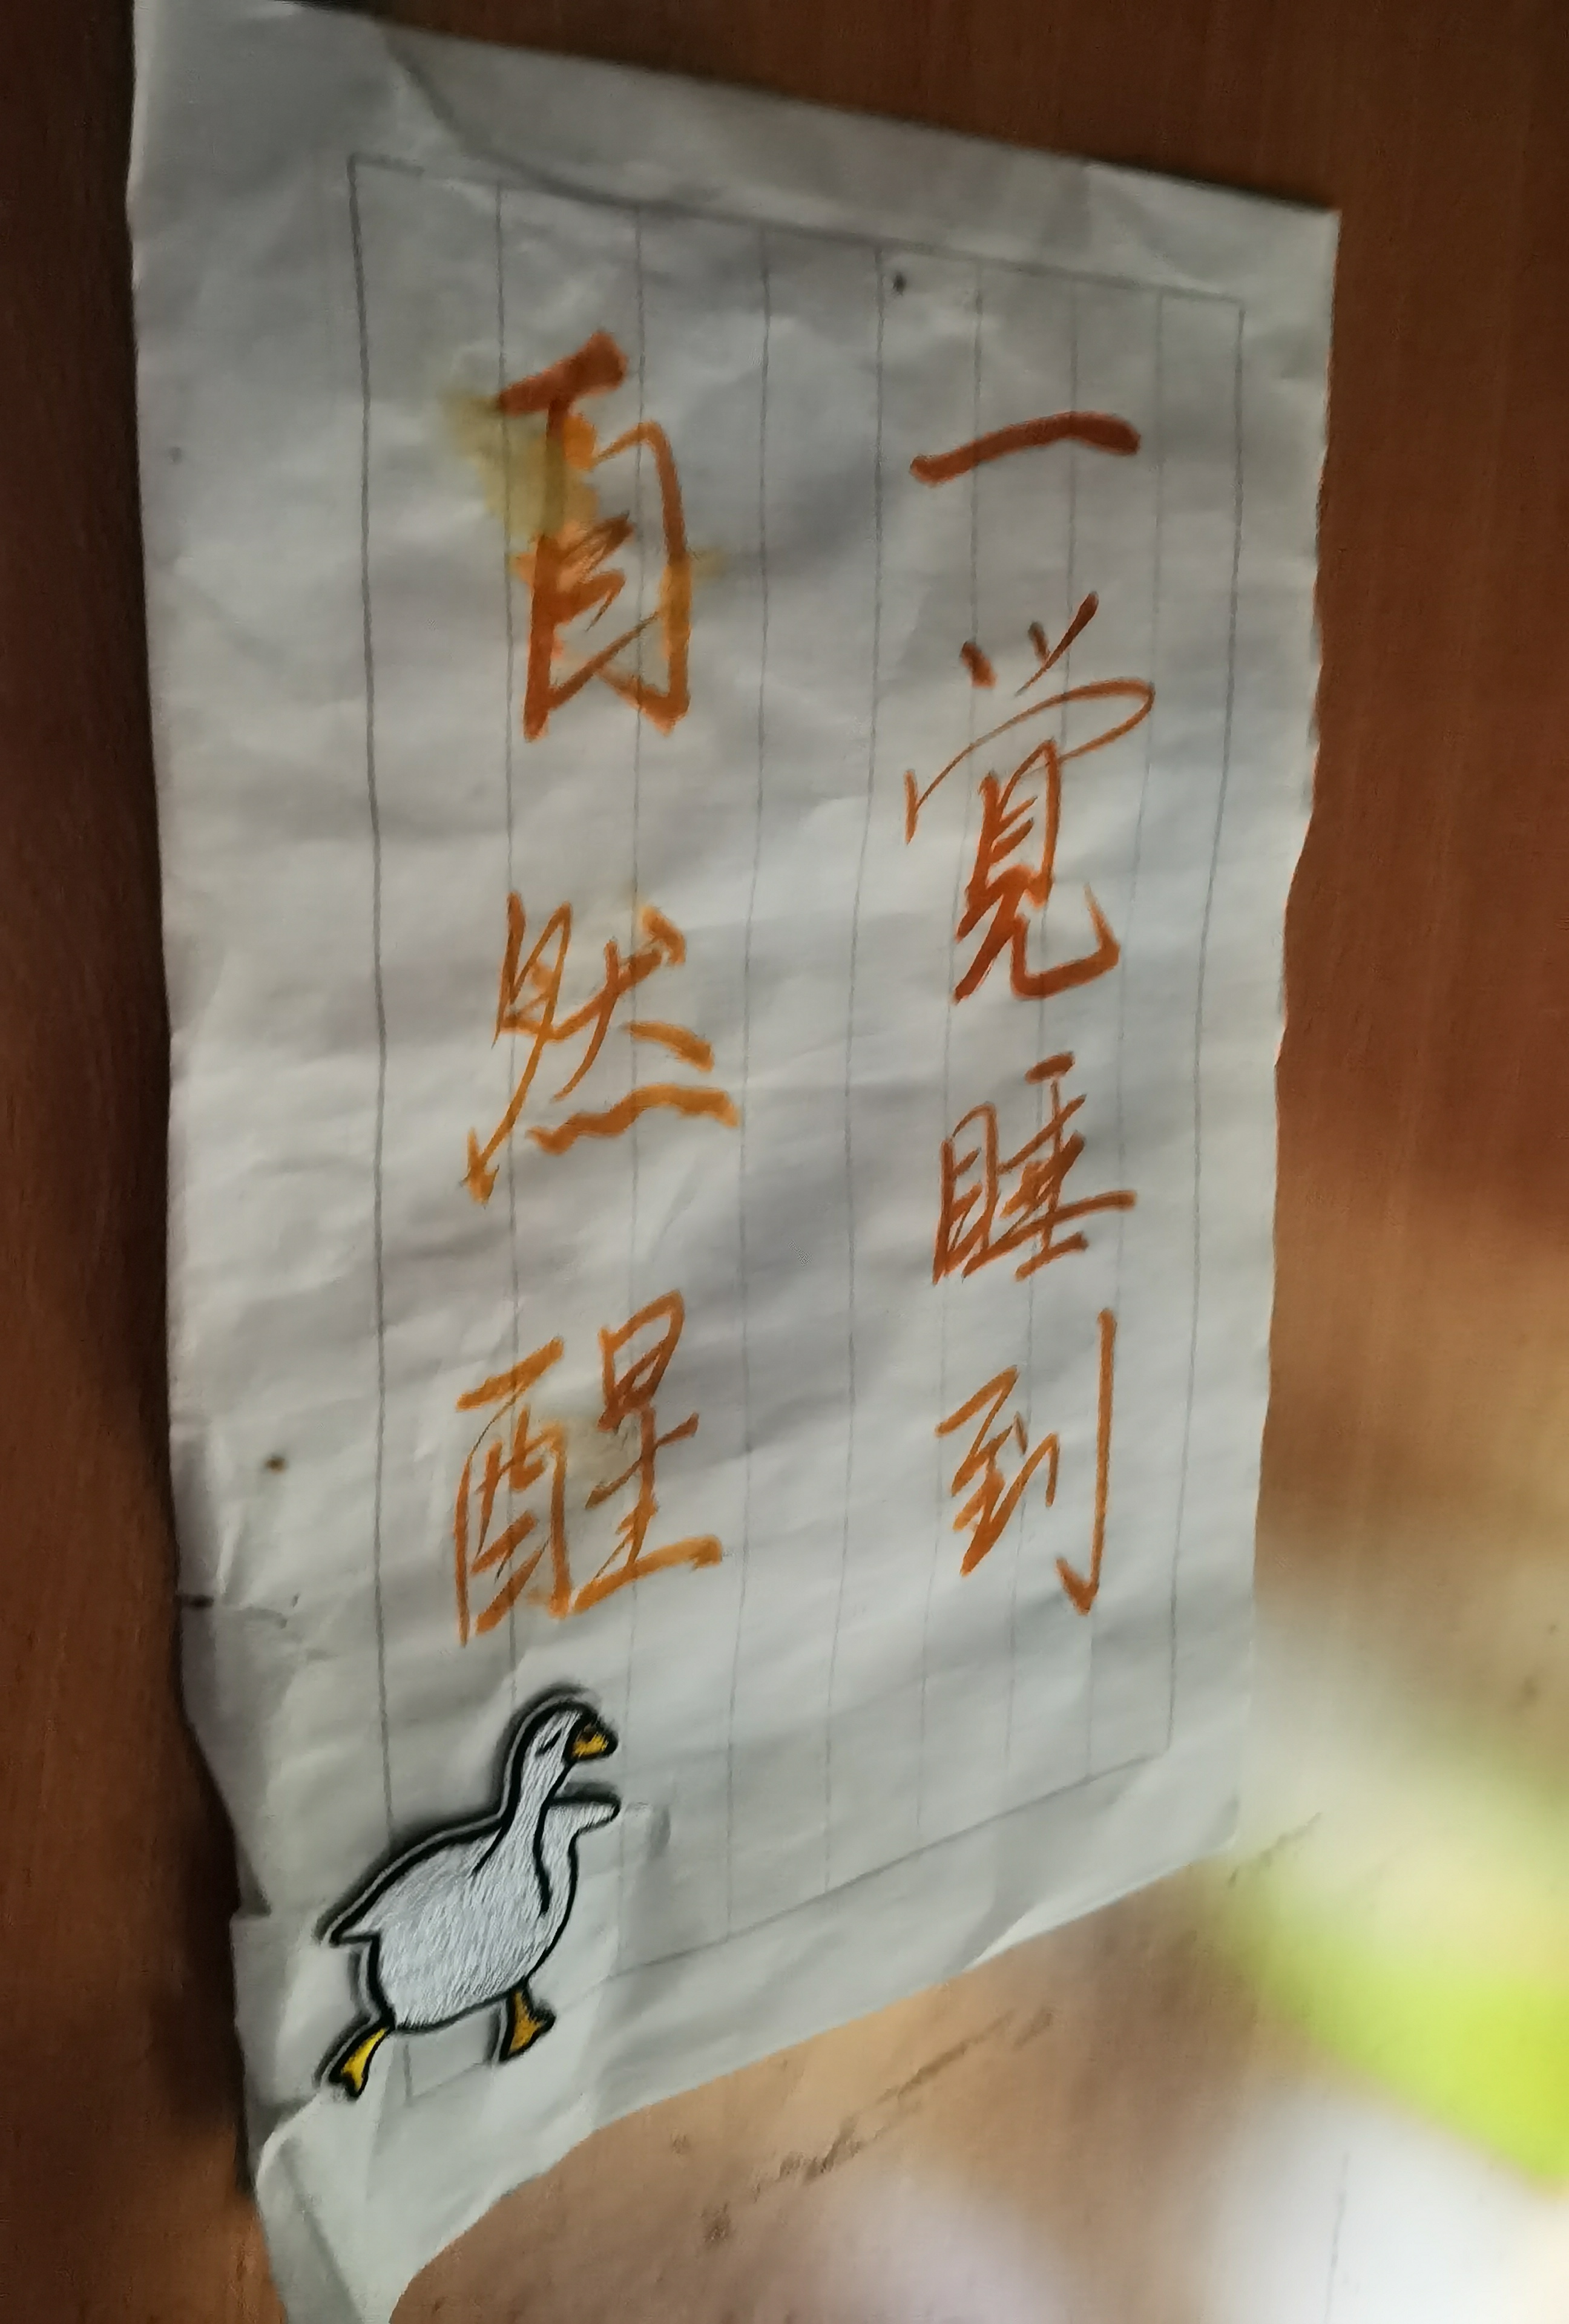 一觉睡到
自然醒